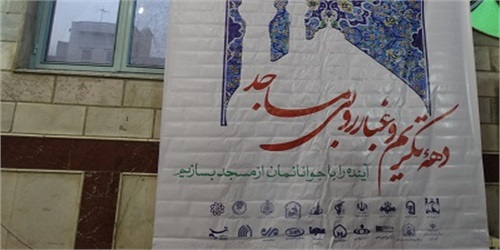 دههٔ تکریم و غبارروبی مساجد
آینده را با جوانانمان از مسجد بسازیم